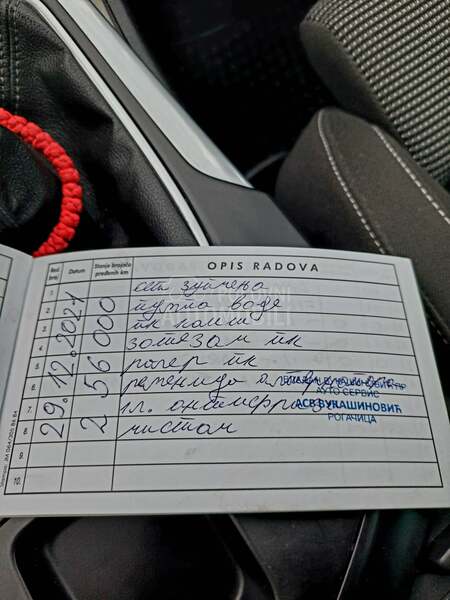 OPIS RADOVA
Red. broj
Datum
Stanje brojača pređenih km
29.12.2021
256000
1 сет зупчења
2 пумпа воде
3 пк каиш
4 затезач пк
5 ролер пк
6 ременица алтернатора
7 1л. антифриза
8 чистач
9
10
АУТО СЕРВИС
АСВ ВУКАШИНОВИЋ
РОГАЧИЦА